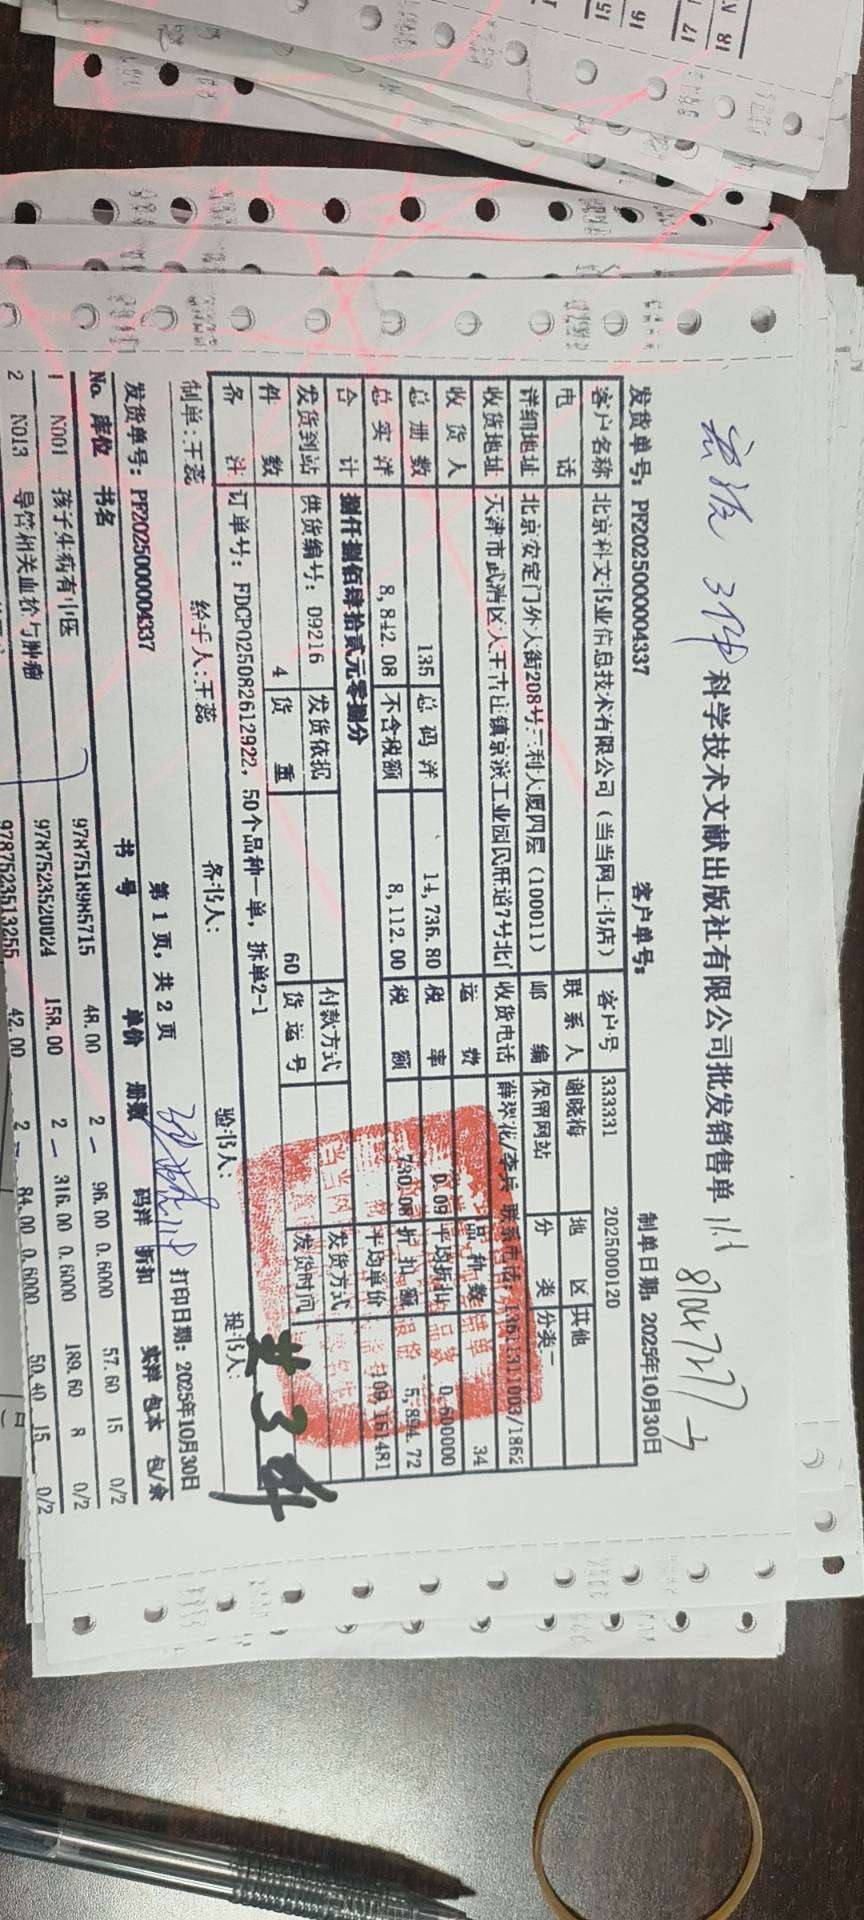 科学技术文献出版社有限公司批发销售单
发货单号: PF2025000004337 客户单号: 制单日期: 2025年10月30日
客户名称 北京科文书业信息技术有限公司（当当网上书店） 客户号 333331 2025000120
电 话 联系人 谢晓梅 地 区 其他
详细地址 北京安定门外大街208号三利大厦四层（100011） 邮 编 保留网站 分 类 分类一
收货地址 天津市武清区大王古庄镇京滨工业园民旺道7号北门 收货电话 薛翠花/李兵 联系电话: 13611311003/1862
收货人 运 费 品种数 34
总册数 135 总码洋 14,736.80 税 率 0.09 平均折扣 0.600000
总实洋 8,842.08 不含税额 8,112.00 税 额 730.08 折扣额 5,894.72
合 计 捌仟捌佰肆拾贰元零捌分 平均单价 109.161481
发货到站 供货编号: 09216 发货依据 付款方式 发货方式
件 数 4 货 重 60 货运号 发货时间
备 注 订单号: FDCP025082612922, 50个品种一单, 拆单2-1
制单:王蕊 经手人:王蕊 备书人: 验书人: 提书人:
发货单号: PF2025000004337 第 1 页, 共 2 页 打印日期: 2025年10月30日
No. 库位 书名 书 号 单价 册数 码洋 折扣 实洋 包本 包/余
1 N001 孩子生病有中医 9787518985715 48.00 2 96.00 0.6000 57.60 15 0/2
9787523520024 158.00 2 316.00 0.6000 189.60 8 0/2
2 N013 导管相关血栓与肿瘤
9787523513255 42.00 2 84.00 0.6000 50.40 15 0/2